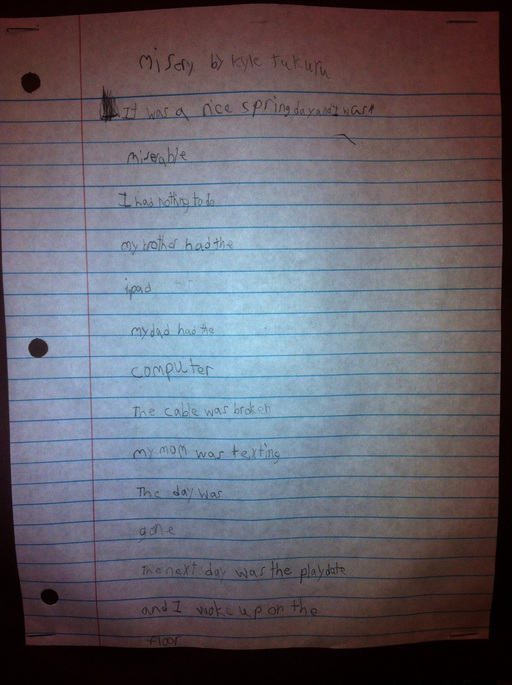 Misery by kyle Tukuru
It was a nice spring day and I was
miserable
I had nothing to do
my brother had the
ipad
my dad had the
computer
The cable was broken
my mom was texting
The day was
gone
The next day was the playdate
and I woke up on the
floor